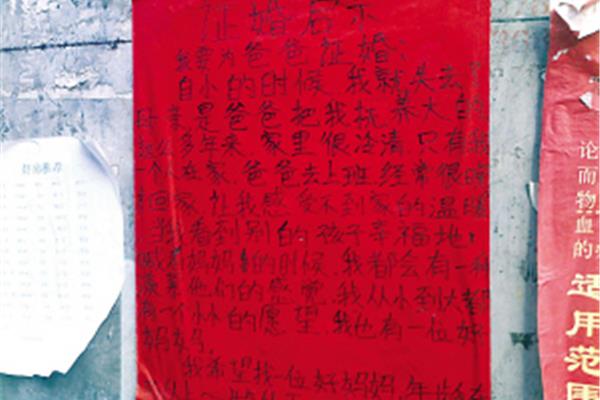 征婚启示
我要为爸爸征婚:
自小的时候,我就失去了
母亲是爸爸把我抚养大的
这么多年来,家里很冷清,只有我
一个人在家,爸爸去上班经常很晚
回家,让我感受不到家的温暖
当我看到别的孩子幸福地
喊着妈妈的时候,我都会有一种
羡慕他们的感觉,我从小到大都
有个小小的愿望,我也有一位好
妈妈.
我希望找一位好妈妈,年龄在
论
而
物
血
的
适
用
范
围